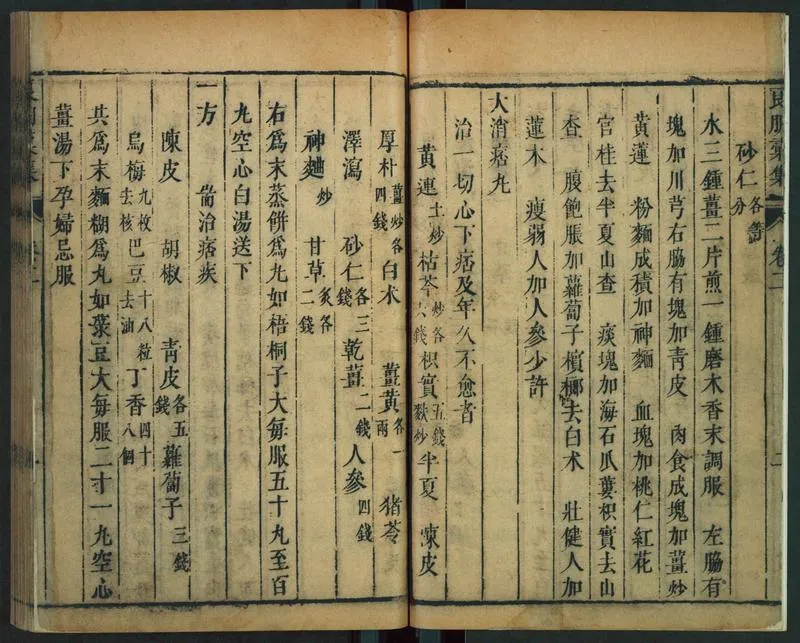 良朋彙集 卷二 二
砂仁各等分
水三鍾薑二片煎一鍾磨木香末調服 左脇有
塊加川芎右脇有塊加青皮 肉食成塊加薑炒
黃蓮 粉麵成積加神麯 血塊加桃仁紅花
官桂去半夏山查 痰塊加海石瓜蔞枳實去山
查 腹飽脹加蘿蔔子檳榔去白朮 壯健人加
蓬木 瘦弱人加人參少許
大消痞丸
治一切心下痞及年久不愈者
黃連土炒枯芩炒各六錢枳實五錢麩炒半夏 陳皮
厚朴薑炒各四錢白朮 薑黃各一兩 猪苓
澤瀉 砂仁各三錢乾薑二錢人參四錢
神麯炒 甘草炙各二錢
右爲末蒸餅爲丸如梧桐子大每服五十丸至百
丸空心白湯送下
一方 耑治痞疾
陳皮 胡椒 青皮各五錢蘿蔔子三錢
烏梅九枚去核巴豆十八粒去油丁香四十八個
共爲末麵糊爲丸如菉豆大每服二十一丸空心
薑湯下孕婦忌服